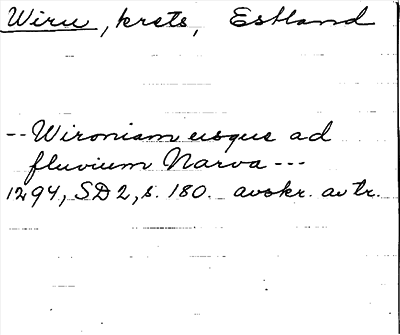 Wiru, krets, Estland
-- Wironiam usque ad
fluvium Narva ---
1294, SD2, s. 180. avskr. av tr.